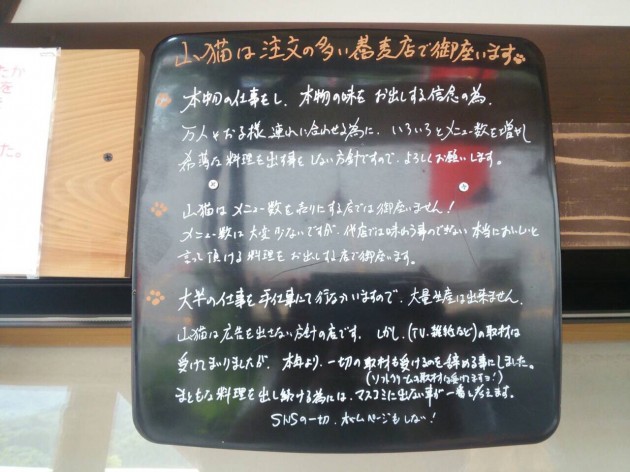 山猫は注文の多い蕎麦店で御座います
本物の仕事をし、本物の味をお出しする信念の為、
万人やお子様連れに合わせる為に、いろいろとメニュー数を増やし
希薄な料理を出す事をしない方針ですので、よろしくお願いします。
山猫はメニュー数を売りにする店では御座いません!
メニュー数は大変少ないですが、他店では味わう事のできない本当においしいと
言って頂ける料理をお出しする店で御座います。
大半の仕事を手仕事にて行なかいますので、大量生産は出来ません。
山猫は広告を出さない方針の店です。しかし、(TV、雑紙など)の取材は
受けてまいりましたが、本年より、一切の取材も受けるのを辞める事にしました。
の取材は受けますヨ!)
まともな料理を出し続ける為には、マスコミに出ない事が一番と考えます。
SNSの一切、ホームページもしない!
た。